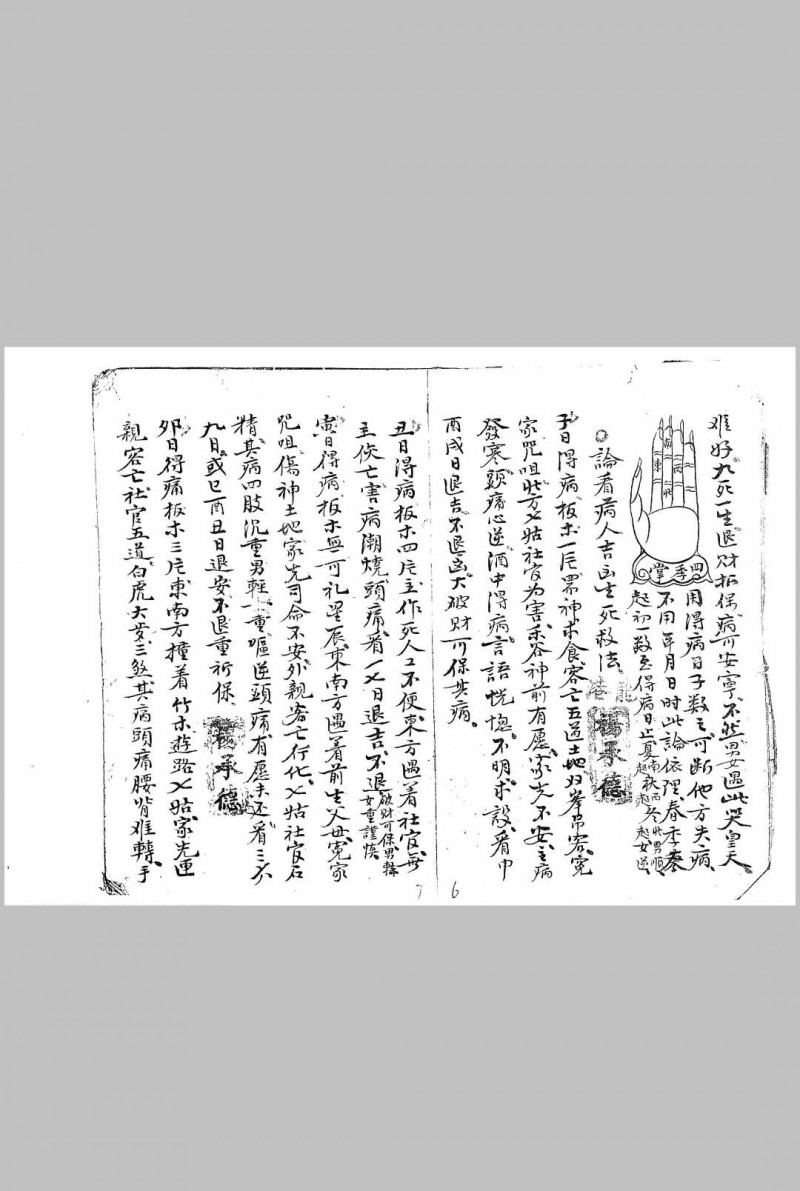 难好九死一生退財折保病可安寧不然男女遇此哭皇天
用得病日子数之可断他方失病
四季掌
不用年月日时此論依理春季東
起初一数至得病日止夏南秋西冬北男順
起女逆
南
東 西
北
論看病人吉凶生死救法
楊承德
子日得病板木一片 神求食客亡五道土地 吊客冤
家咒咀北方七姑社官为害禾谷神前有愿家先不安主病
發寒頭痛心逆酒中得病言語恍惚不明求設看巾
酉戌日退吉不退凶大破財可保其病
6
丑日得病板木四片主作死人工不便東方遇着社官
主 亡害病潮燒頭痛看一七日退吉不退
破財可保男輕
女重謹慎
寅日得病板木無可礼星辰東南方遇着前生父母冤家
咒咀傷神土地家先司命不安外親客亡行化七姑社官石
精其病四肢沉重男輕女重嘔逆頭痛有愿未还看三六
九日或巳酉丑日退安不退重祈保
楊承德
卯日得病板木三片東南方撞着竹木遊路七姑家先
親客亡社官五道白虎大 三煞其病頭痛腰背难轉手
7